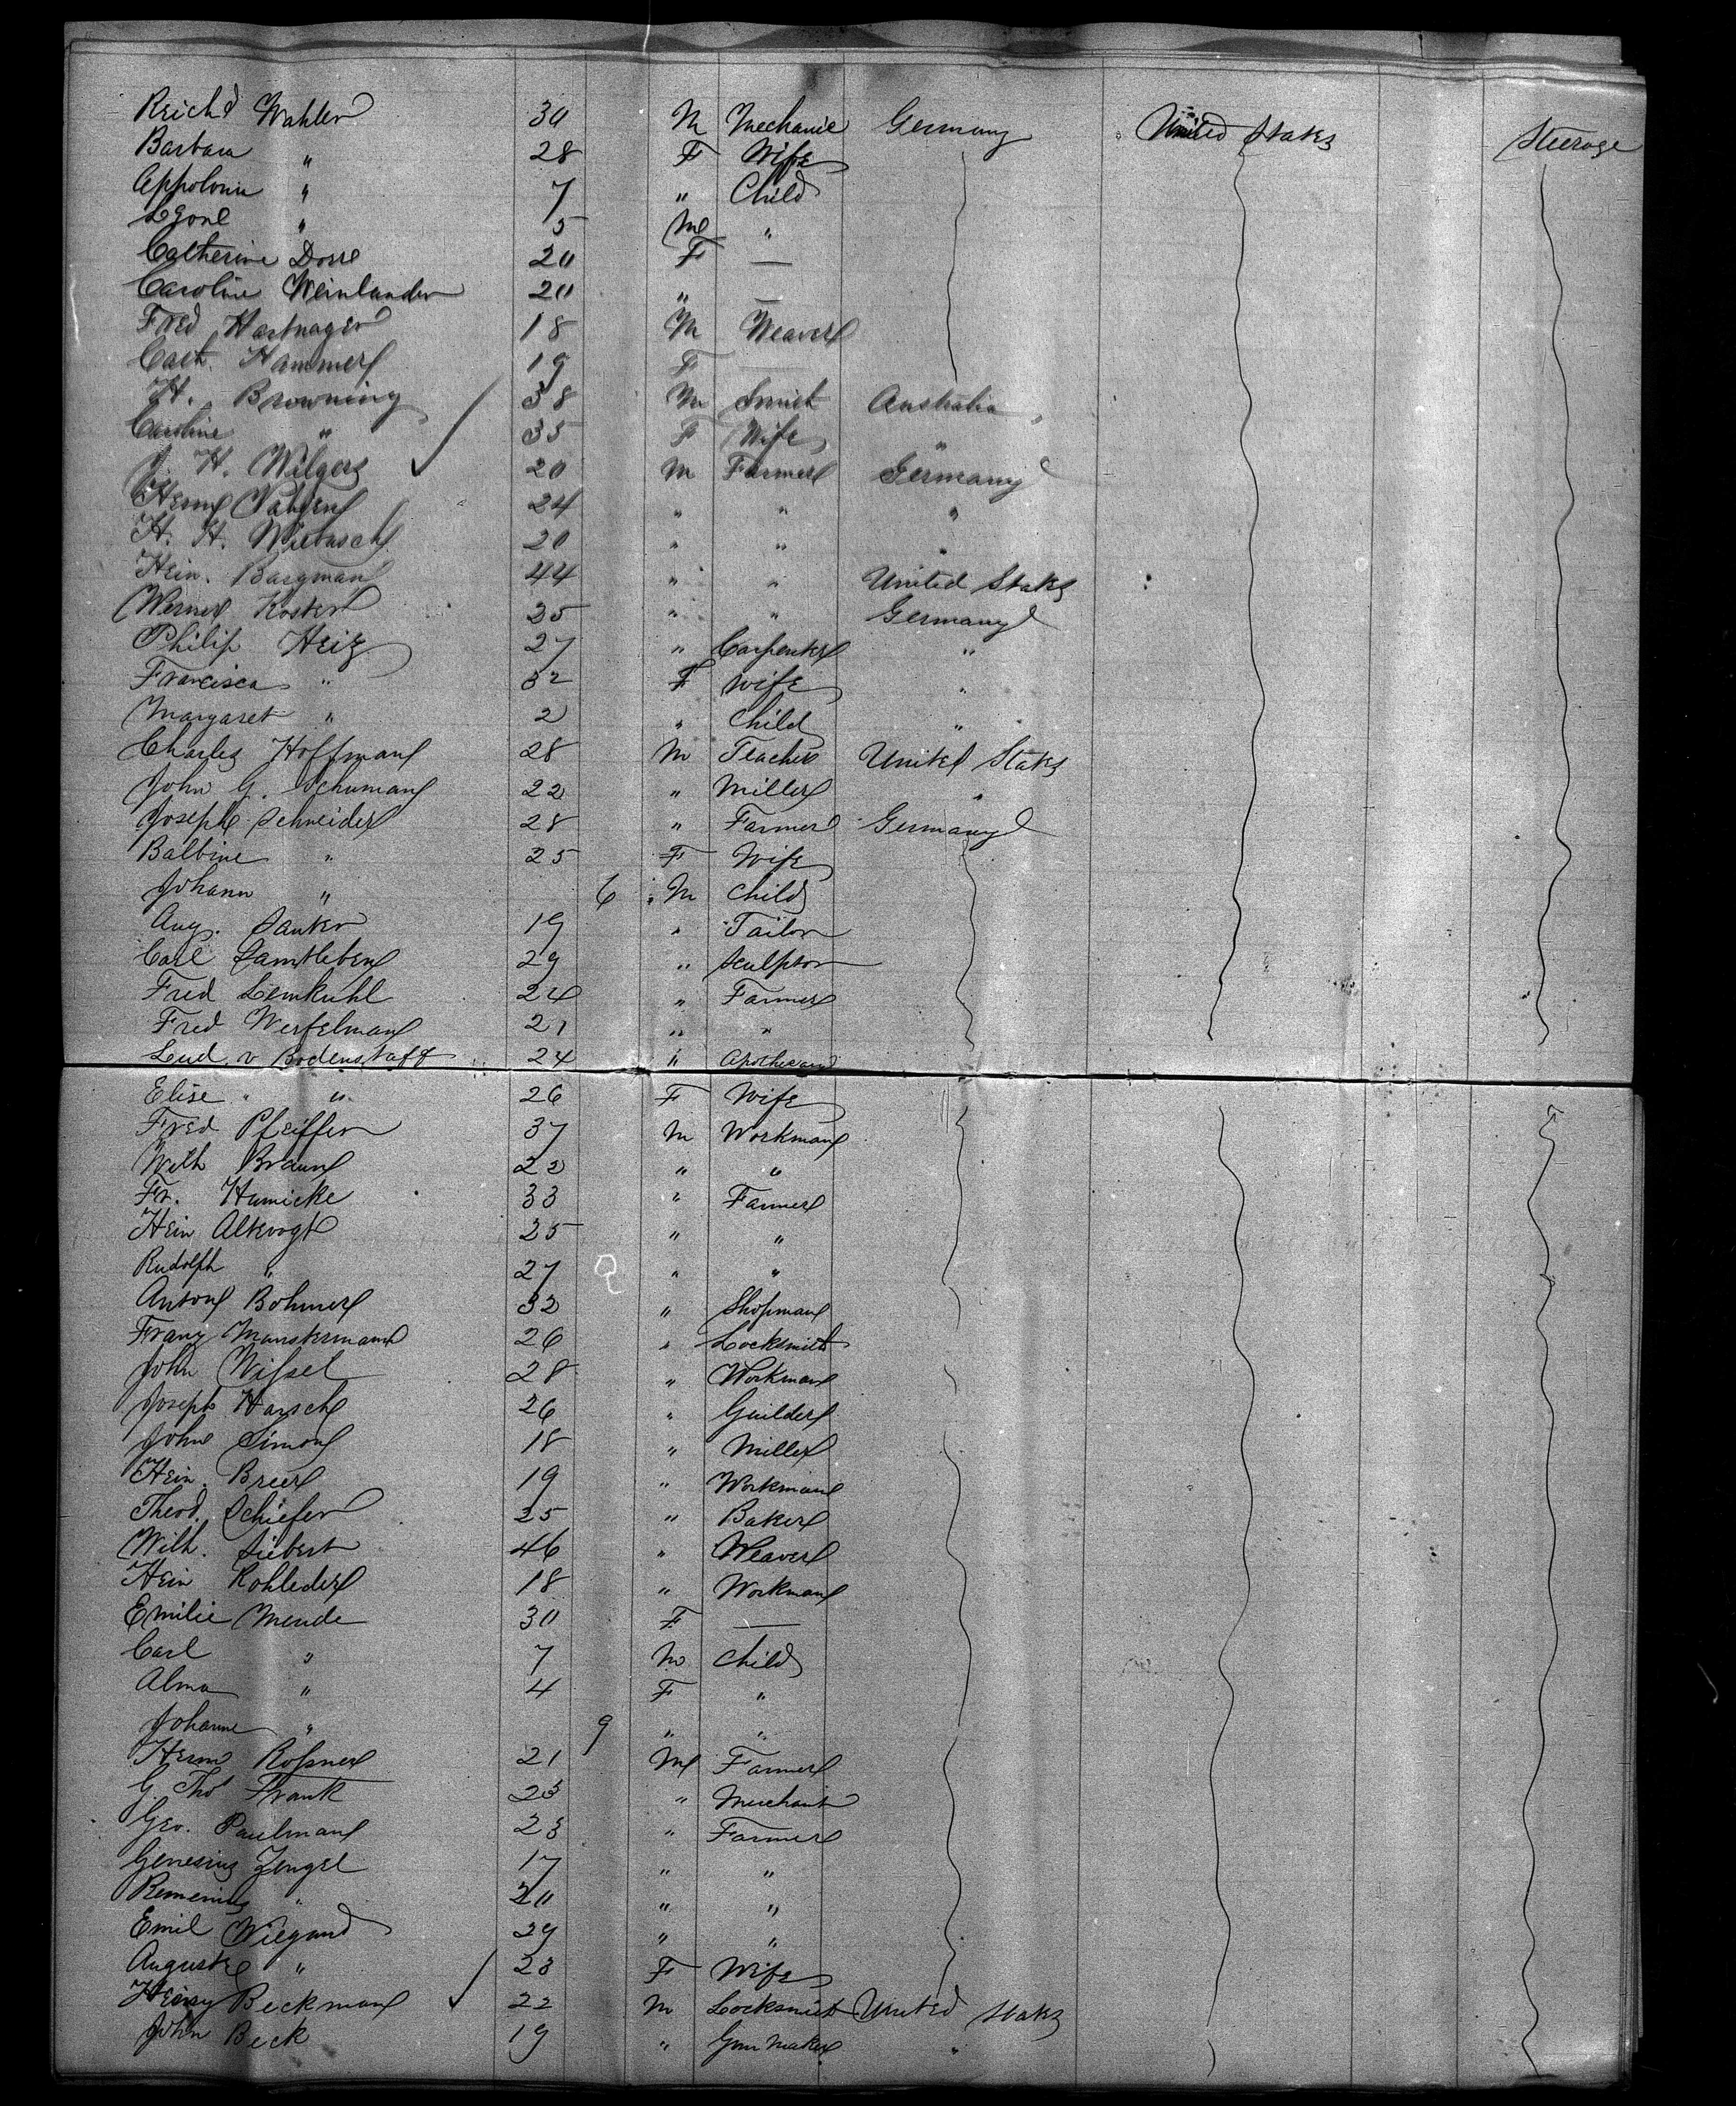 Reich'd Wahler 30 M Mechanic Germany United States Steerage
Barbara " 28 F Wife
Appolonia " 7 " Child
" 5 M "
Catherine Dorre 20 F —
Caroline Weinlander 20 " —
Fred Hartnager 18 M Weaver
Cath. Hammer 19 F —
H. Browning 38 M Smith Australia
Caroline " 35 F Wife "
J. H. Wilgers 20 M Farmer Germany
Herm 24 " " "
H. H. 20 " " "
Hein. Bargman 44 " " United States
Werner Koster 25 " " Germany
Philip Heiz 27 " Carpenter "
Francisca " 32 F Wife "
Margaret " 2 " Child "
Charles Hoffman 28 M Teacher United States
John G. Schuman 22 " Miller "
Joseph Schneider 28 " Farmer Germany
Balbine " 25 F Wife
Johann " 6 M Child
Aug. Sanker 19 " Tailor
Carl Samtleben 29 " Sculptor
Fred Lemkuhl 24 " Farmer
Fred Werfelman 21 " "
Lud. v Bodenstaff 24 " Apothecary
Elise " " 26 F Wife
Fred Pfeiffer 37 M Workman
Wilh Braun 22 " "
Fr. Humicke 33 " Farmer
Hein Altvogt 25 " "
Rudolph " 27 " "
Anton Bohmer 32 " Shopman
Franz Munstermann 26 " Locksmith
John Wissel 28 " Workman
Joseph Harsch 26 " Guilder
John Simon 18 " Miller
Hein. Breer 19 " Workman
Theod. Schiefer 25 " Baker
Wilh. Siebert 46 " Weaver
Hein Kohleder 18 " Workman
Emilie Mende 30 F —
Carl " 7 M Child
Alma " 4 F "
Johanne " 9 " "
Herm Rossner 21 M Farmer
G. Thd Frank 23 " Merchant
Geo. Paulman 23 " Farmer
Genesius Zengel 17 " "
" 20 " "
Emil Wiegand 29 " "
Auguste " 23 F Wife
Henry Beckman 22 M Locksmith United States
John Beck 19 " Gun Maker "